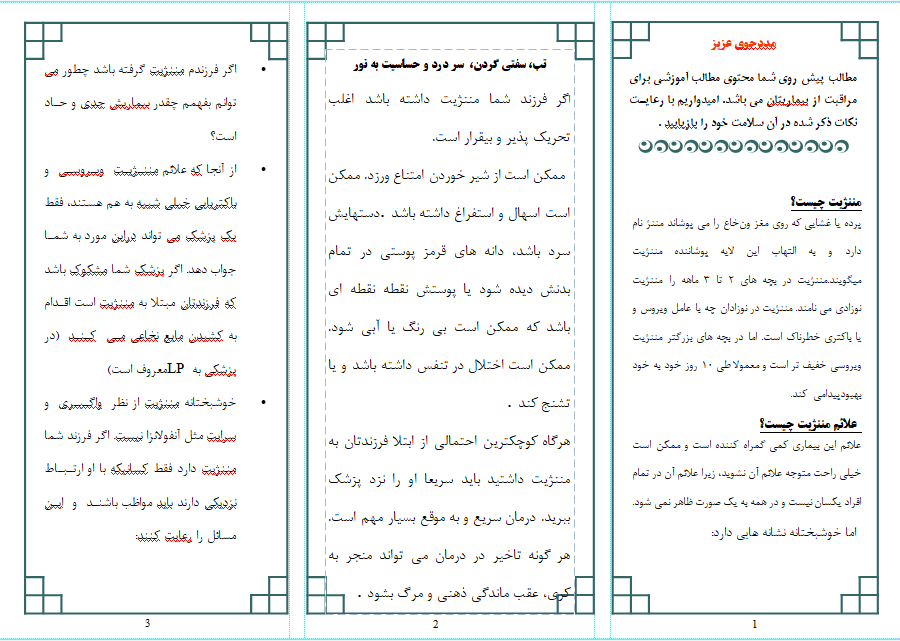 مددجوی عزیز
مطالب پیش روی شما محتوی مطالب آموزشی برای
مراقبت از بیماریتان می باشد. امیدواریم با رعایت
نکات ذکر شده در آن سلامت خود را بازیابید .
مننژیت چیست؟
پرده یا غشایی که روی مغز ونخاع را می پوشاند مننژ نام
دارد و به التهاب این لایه پوشاننده مننژیت
میگویند.مننژیت در بچه های ۲ تا ۳ ماهه را مننژیت
نوزادی می نامند. مننژیت در نوزادان چه با عامل ویروس و
یا باکتری خطرناک است. اما در بچه های بزرگتر مننژیت
ویروسی خفیف تر است و معمولا طی ۱۰ روز خود به خود
بهبودپیدامی کند.
علائم مننژیت چیست؟
علائم این بیماری کمی گمراه کننده است و ممکن است
خیلی راحت متوجه علائم آن نشوید، زیرا علائم آن در تمام
افراد یکسان نیست و در همه به یک صورت ظاهر نمی شود.
اما خوشبختانه نشانه هایی دارد:
1
تب، سفتی گردن، سر درد و حساسیت به نور
اگر فرزند شما مننژیت داشته باشد اغلب
تحریک پذیر و بیقرار است.
ممکن است از شیر خوردن امتناع ورزد. ممکن
است اسهال و استفراغ داشته باشد .دستهایش
سرد باشد، دانه های قرمز پوستی در تمام
بدنش دیده شود یا پوستش نقطه نقطه ای
باشد که ممکن است بی رنگ یا آبی شود.
ممکن است اختلال در تنفس داشته باشد و یا
تشنج کند .
هرگاه کوچکترین احتمالی از ابتلا فرزندتان به
مننژیت داشتید باید سریعا او را نزد پزشک
ببرید. درمان سریع و به موقع بسیار مهم است.
هر گونه تاخیر در درمان می تواند منجر به
کری، عقب ماندگی ذهنی و مرگ بشود .
2
• اگر فرزندم مننژیت گرفته باشد چطور می
توانم بفهمم چقدر بیماریش جدی و حاد
است؟
• از آنجا که علائم مننژیت ویروسی و
باکتریایی خیلی شبیه به هم هستند، فقط
یک پزشک می تواند دراین مورد به شما
جواب دهد. اگر پزشک شما مشکوک باشد
که فرزندتان مبتلا به مننژیت است اقدام
به کشیدن مایع نخاعی می کنند (در
پزشکی به LPمعروف است)
• خوشبختانه مننژیت از نظر واگیری و
سرایت مثل آنفولانزا نیست. اگر فرزند شما
مننژیت دارد فقط کسانیکه با او ارتباط
نزدیکی دارند باید مواظب باشند و این
مسائل را رعایت کنند:
3